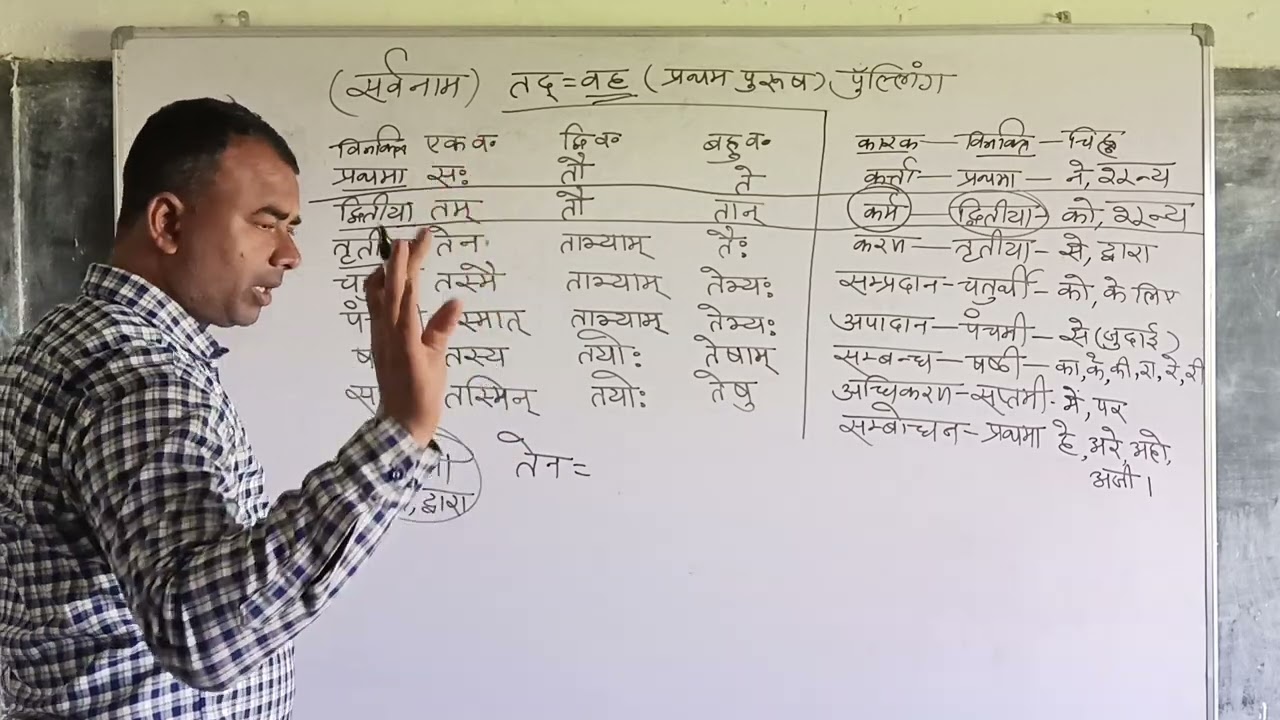 (सर्वनाम) तद् = वह (प्रथम पुरूष) पुॅल्लिंग
विभक्ति एकव॰ द्विव॰ बहुव॰
प्रथमा सः तौ ते
द्वितीया तम् तौ तान्
तेन ताभ्याम् तैः
तस्मै ताभ्याम् तेभ्यः
ताभ्याम् तेभ्यः
तस्य तयोः तेषाम्
तस्मिन् तयोः तेषु
कारक — विभक्ति — चिह्न
कर्त्ता — प्रथमा — ने, शून्य
कर्म — द्वितीया - को, शून्य
करण — तृतीया — से, द्वारा
सम्प्रदान - चतुर्थी - को, के लिए
अपादान — पंचमी - से (जुदाई)
सम्बन्ध — षष्ठी — का, के, की, रा, रे, री
अधिकरण - सप्तमी - में, पर
सम्बोधन - प्रथमा हे, अरे, अहो,
अजी।
, द्वारा
तेन =